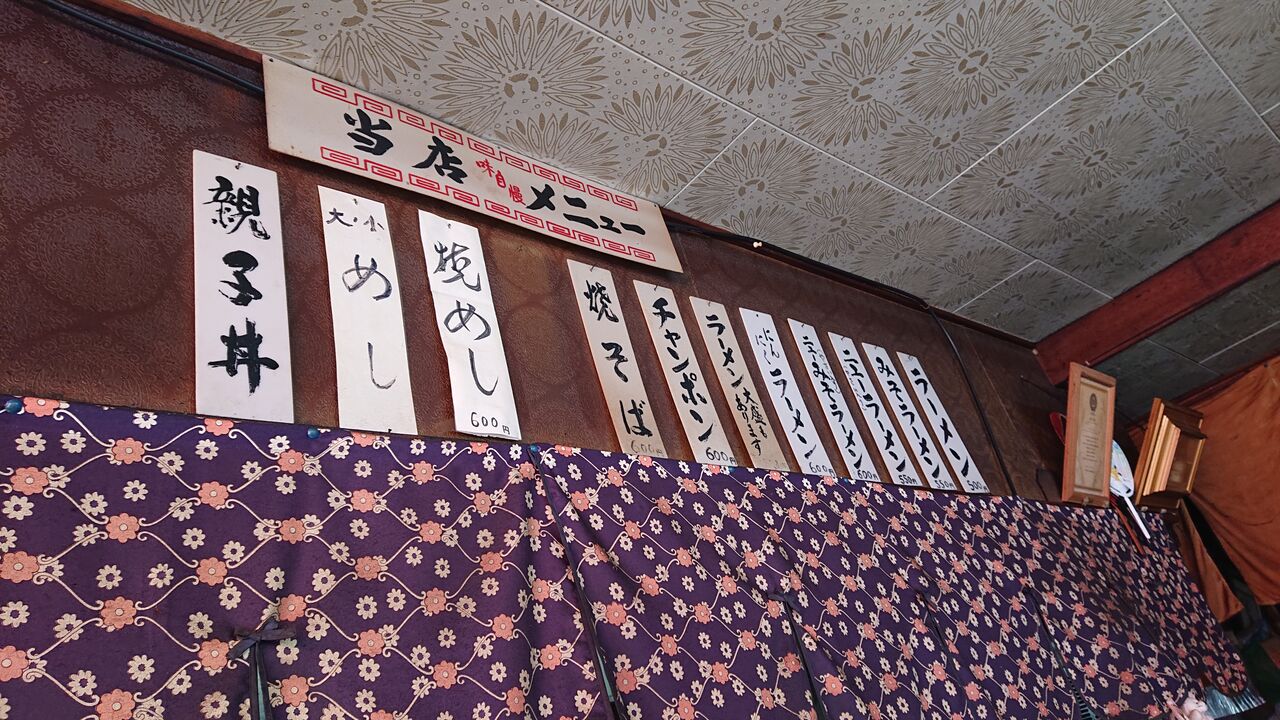 当店味自慢メニュー
ラーメン 500円
みそラーメン 550円
ニューラーメン 550円
ニューみそラーメン 600円
にんにくラーメン 600円
ラーメン大盛あります
チャンポン 600円
焼そば 600円
焼めし 600円
大・小 めし
親子丼